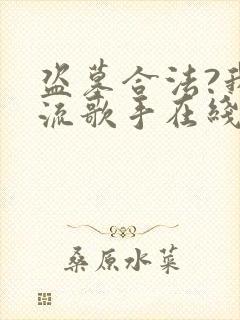 盗墓合法?我
流歌手在线
桑原水菜